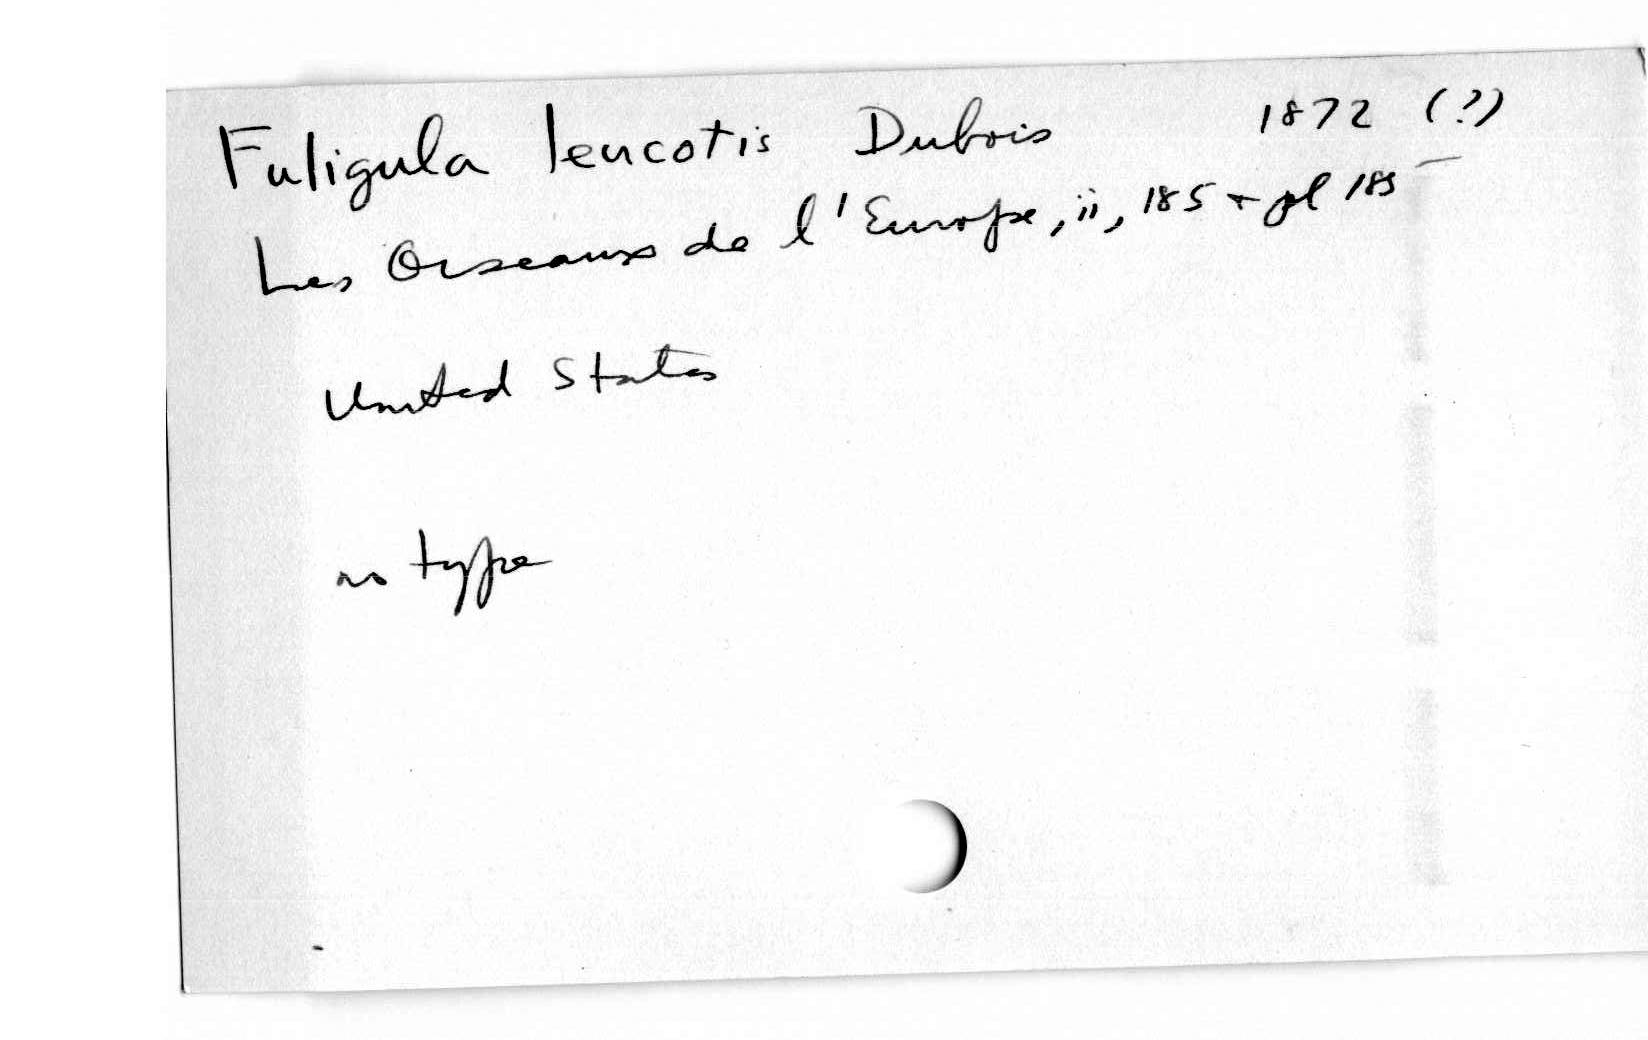 Fuligula leucotis Dubois 1872 (?)
Les Oiseaux de l'Europe, ii, 185 + pl 185
United States
no type